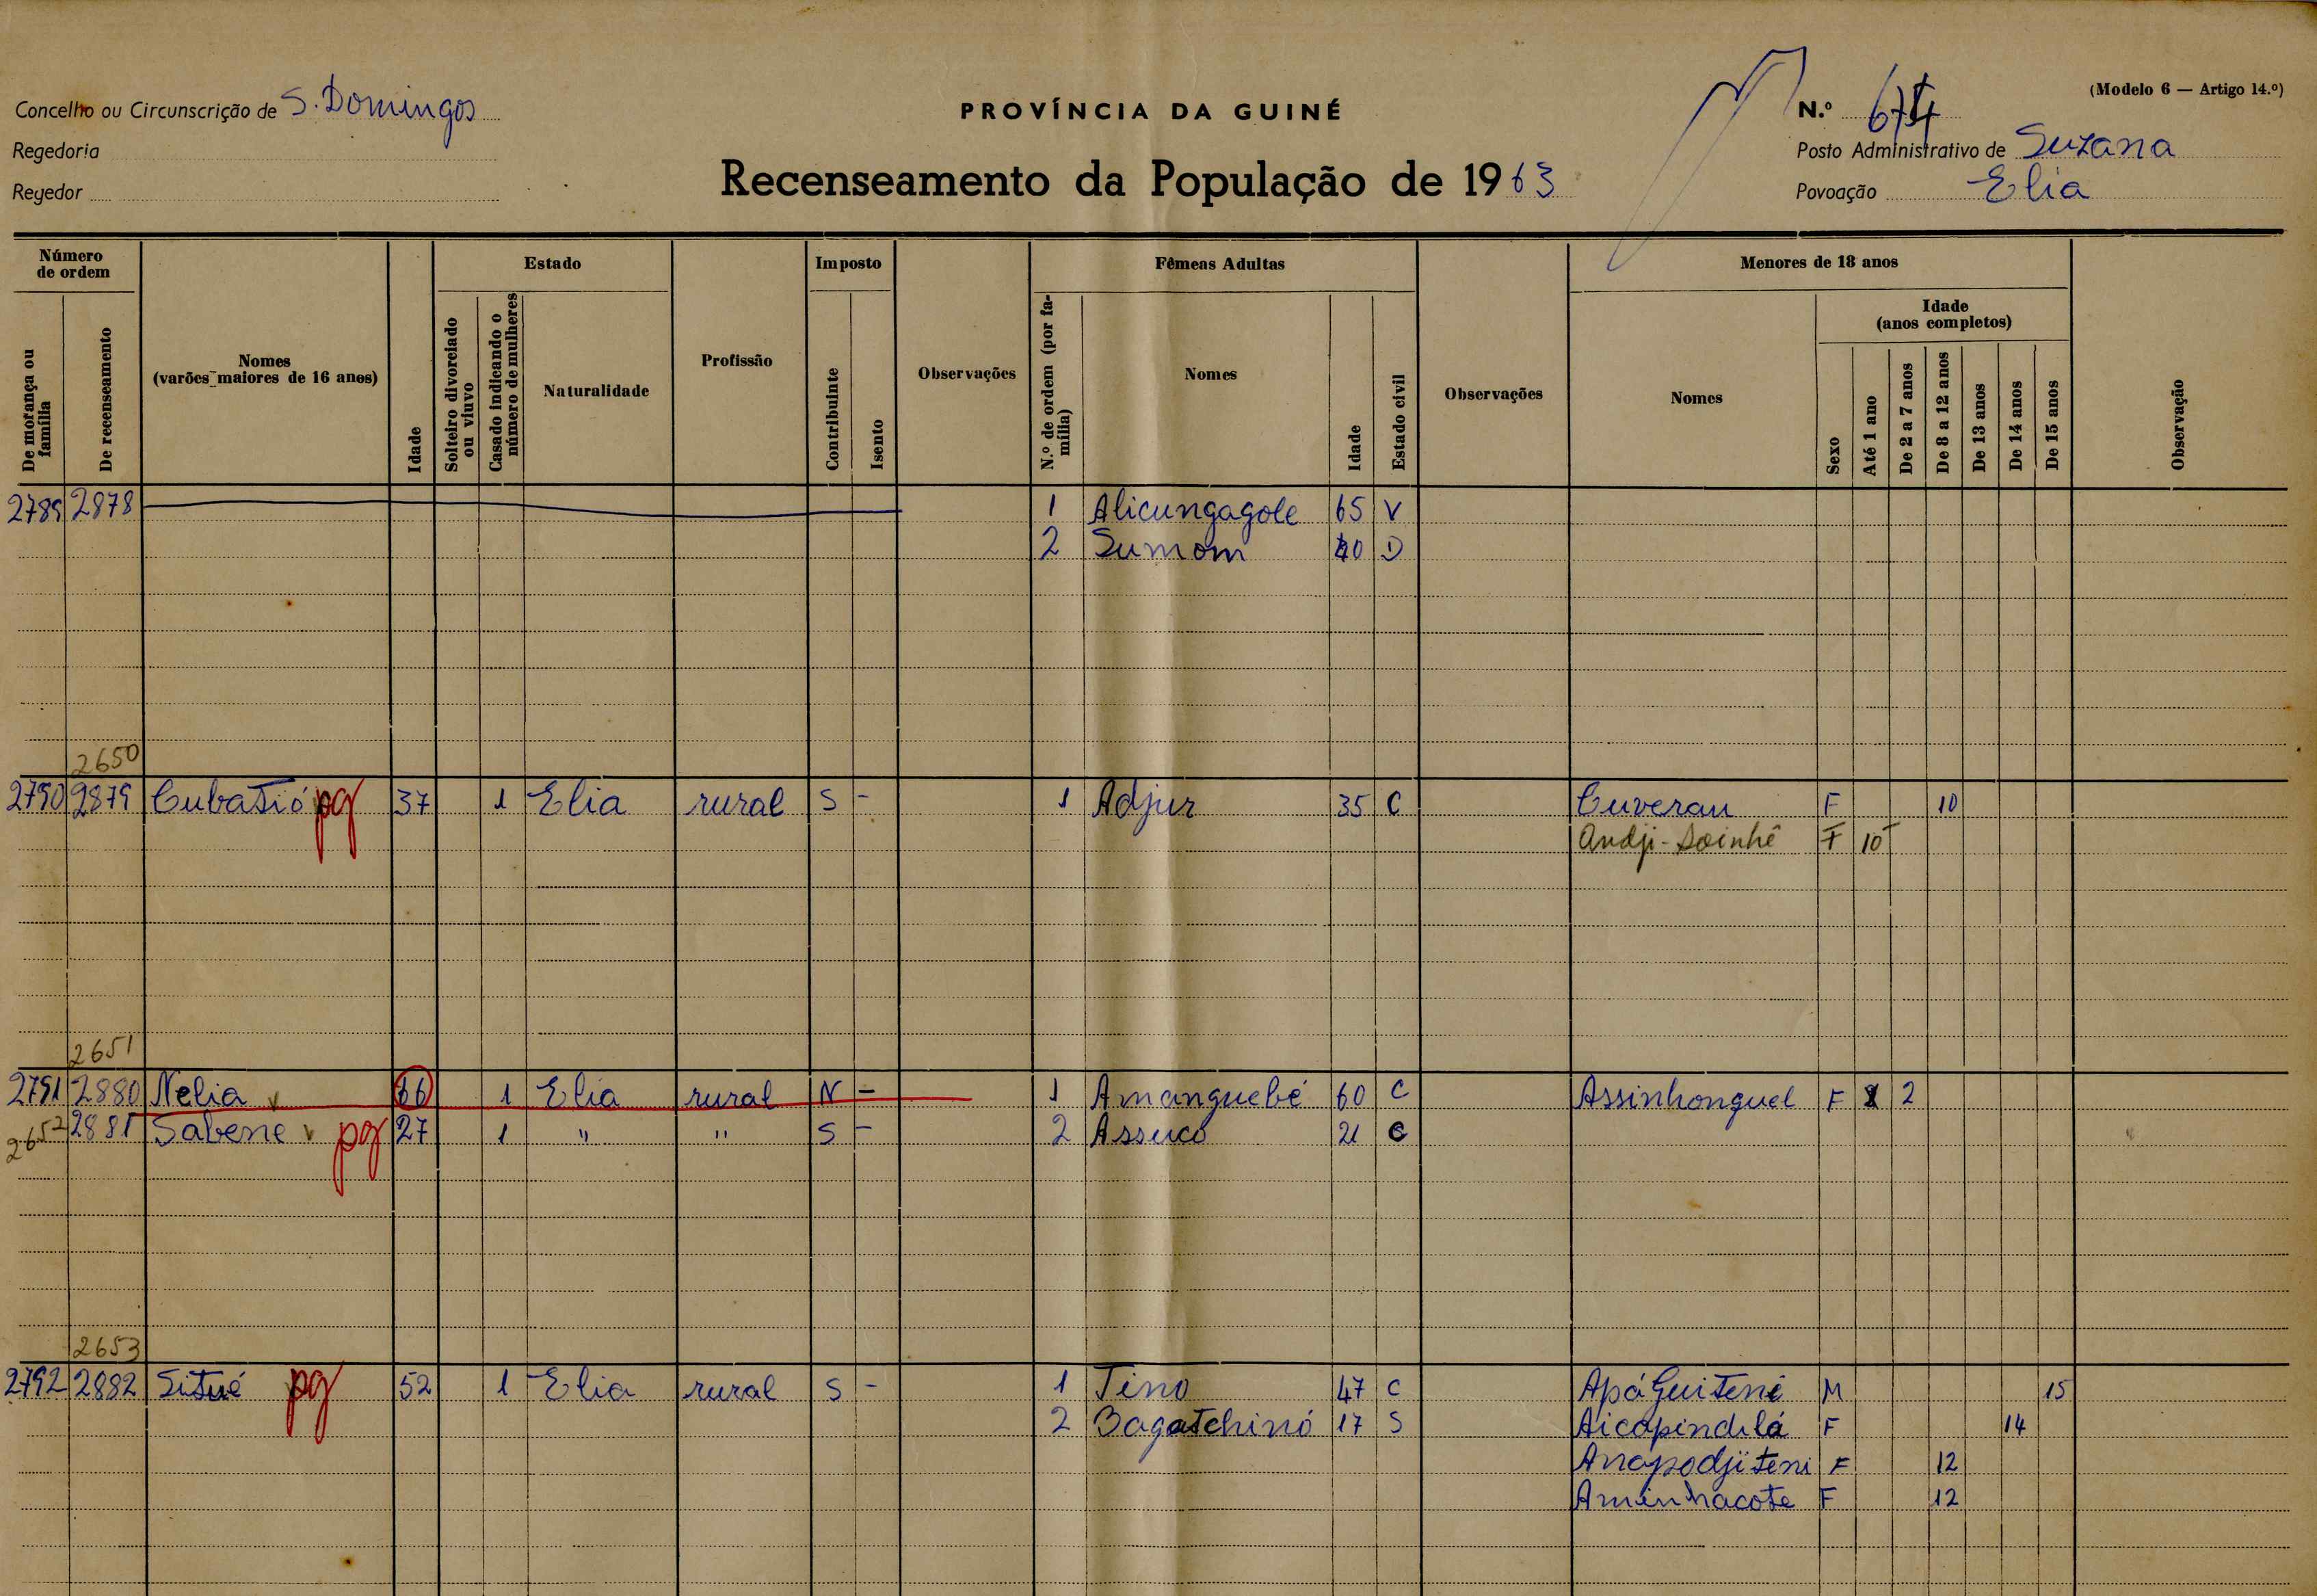 (Modelo 6 — Artigo 14.º)
Concelho ou Circunscrição de S. Domingos
PROVÍNCIA DA GUINÉ
N.º 674
Regedoria
Posto Administrativo de Suzana
Regedor
Recenseamento da População de 1963
Povoação Elia
Número de ordem
De morança ou família
De recenseamento
Nomes
(varões maiores de 16 anos)
Idade
Estado
Solteiro divorciado ou viuvo
Casado indicando o número de mulheres
Naturalidade
Profissão
Imposto
Contribuinte
Isento
Observações
Fêmeas Adultas
N.º de ordem (por família)
Nomes
Idade
Estado civil
Observações
Menores de 18 anos
Nomes
Sexo
Idade
(anos completos)
Até 1 ano
De 2 a 7 anos
De 8 a 12 anos
De 13 anos
De 14 anos
De 15 anos
Observação
2789 2878 1 Alicungagole 65 V
2 Sumom 40 D
2650
2790 2879 Cubatió pg 37 1 Elia rural S - 1 Adjur 35 C Cuveran F 10
Andji-Soinhê F 10
2651
2791 2880 Nelia v 66 1 Elia rural N - 1 Amanguebé 60 C Assinhonguel F 2
2652 2881 Sabene v pg 27 1 " " S - 2 Assucó 21 C
2653
2792 2882 Situé pg 52 1 Elia rural S - 1 Tino 47 C Apá Guiteni M 15
2 Bagatchinó 17 S Aicapindilá F 14
Anapodjiteni F 12
Aminhacote F 12